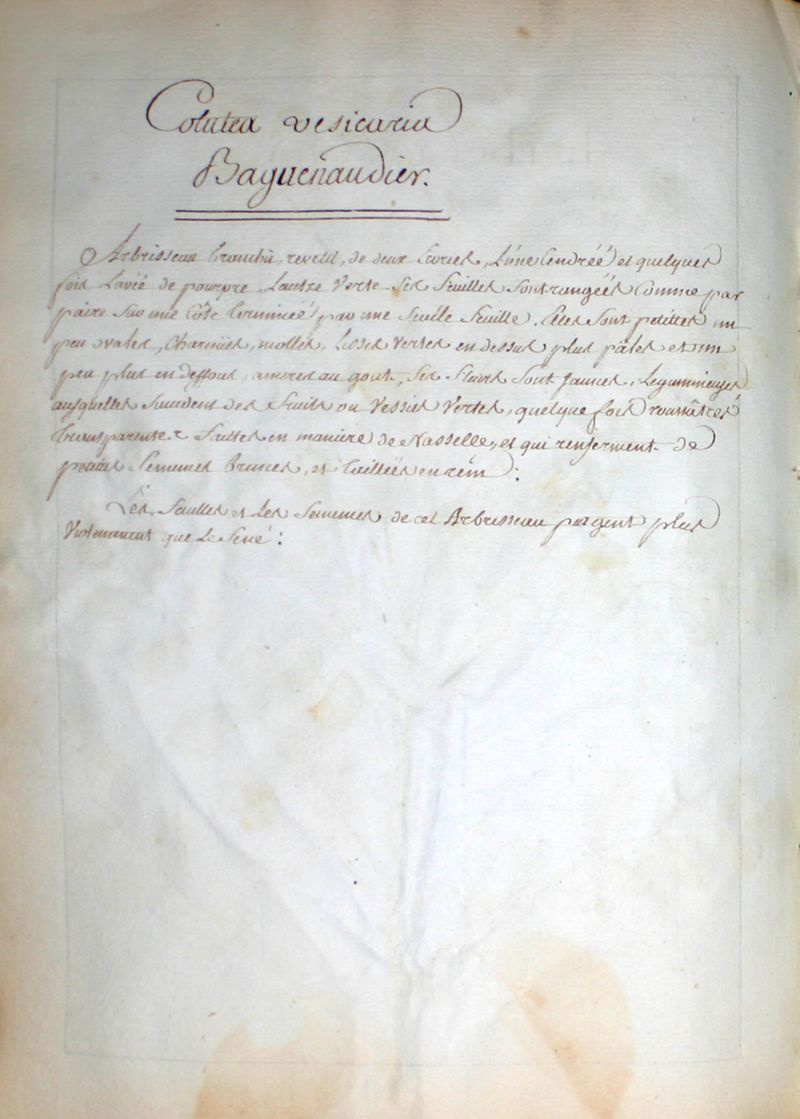 Colutea vesicaria
Baguenaudier.
Arbrisseau branchu, revetu, de deux Ecorces, L'une Cendrée et quelques
fois Lavée de pourpre Lautre Verte. Ses feuilles sont rangées Comme par
paire sur une Côte terminée par une seule feuille. Elles sont petittes un
peu ovales, Charnues, molles, Lisses Vertes en dessus plus pâles et un
peu plus en dessous, ameres au gout, Ses fleurs sont jaunes, Legumineuses
ausquelles succedent des fruits ou Vessies Vertes, quelque fois roussâtres
transparentes faittes en maniere de Nasselle, et qui renferment de
petites Semences brunes, et taillées en rein :
Les feuilles et Les Semences de cet Arbrisseau purgent plus
Violemment que Le Sené :